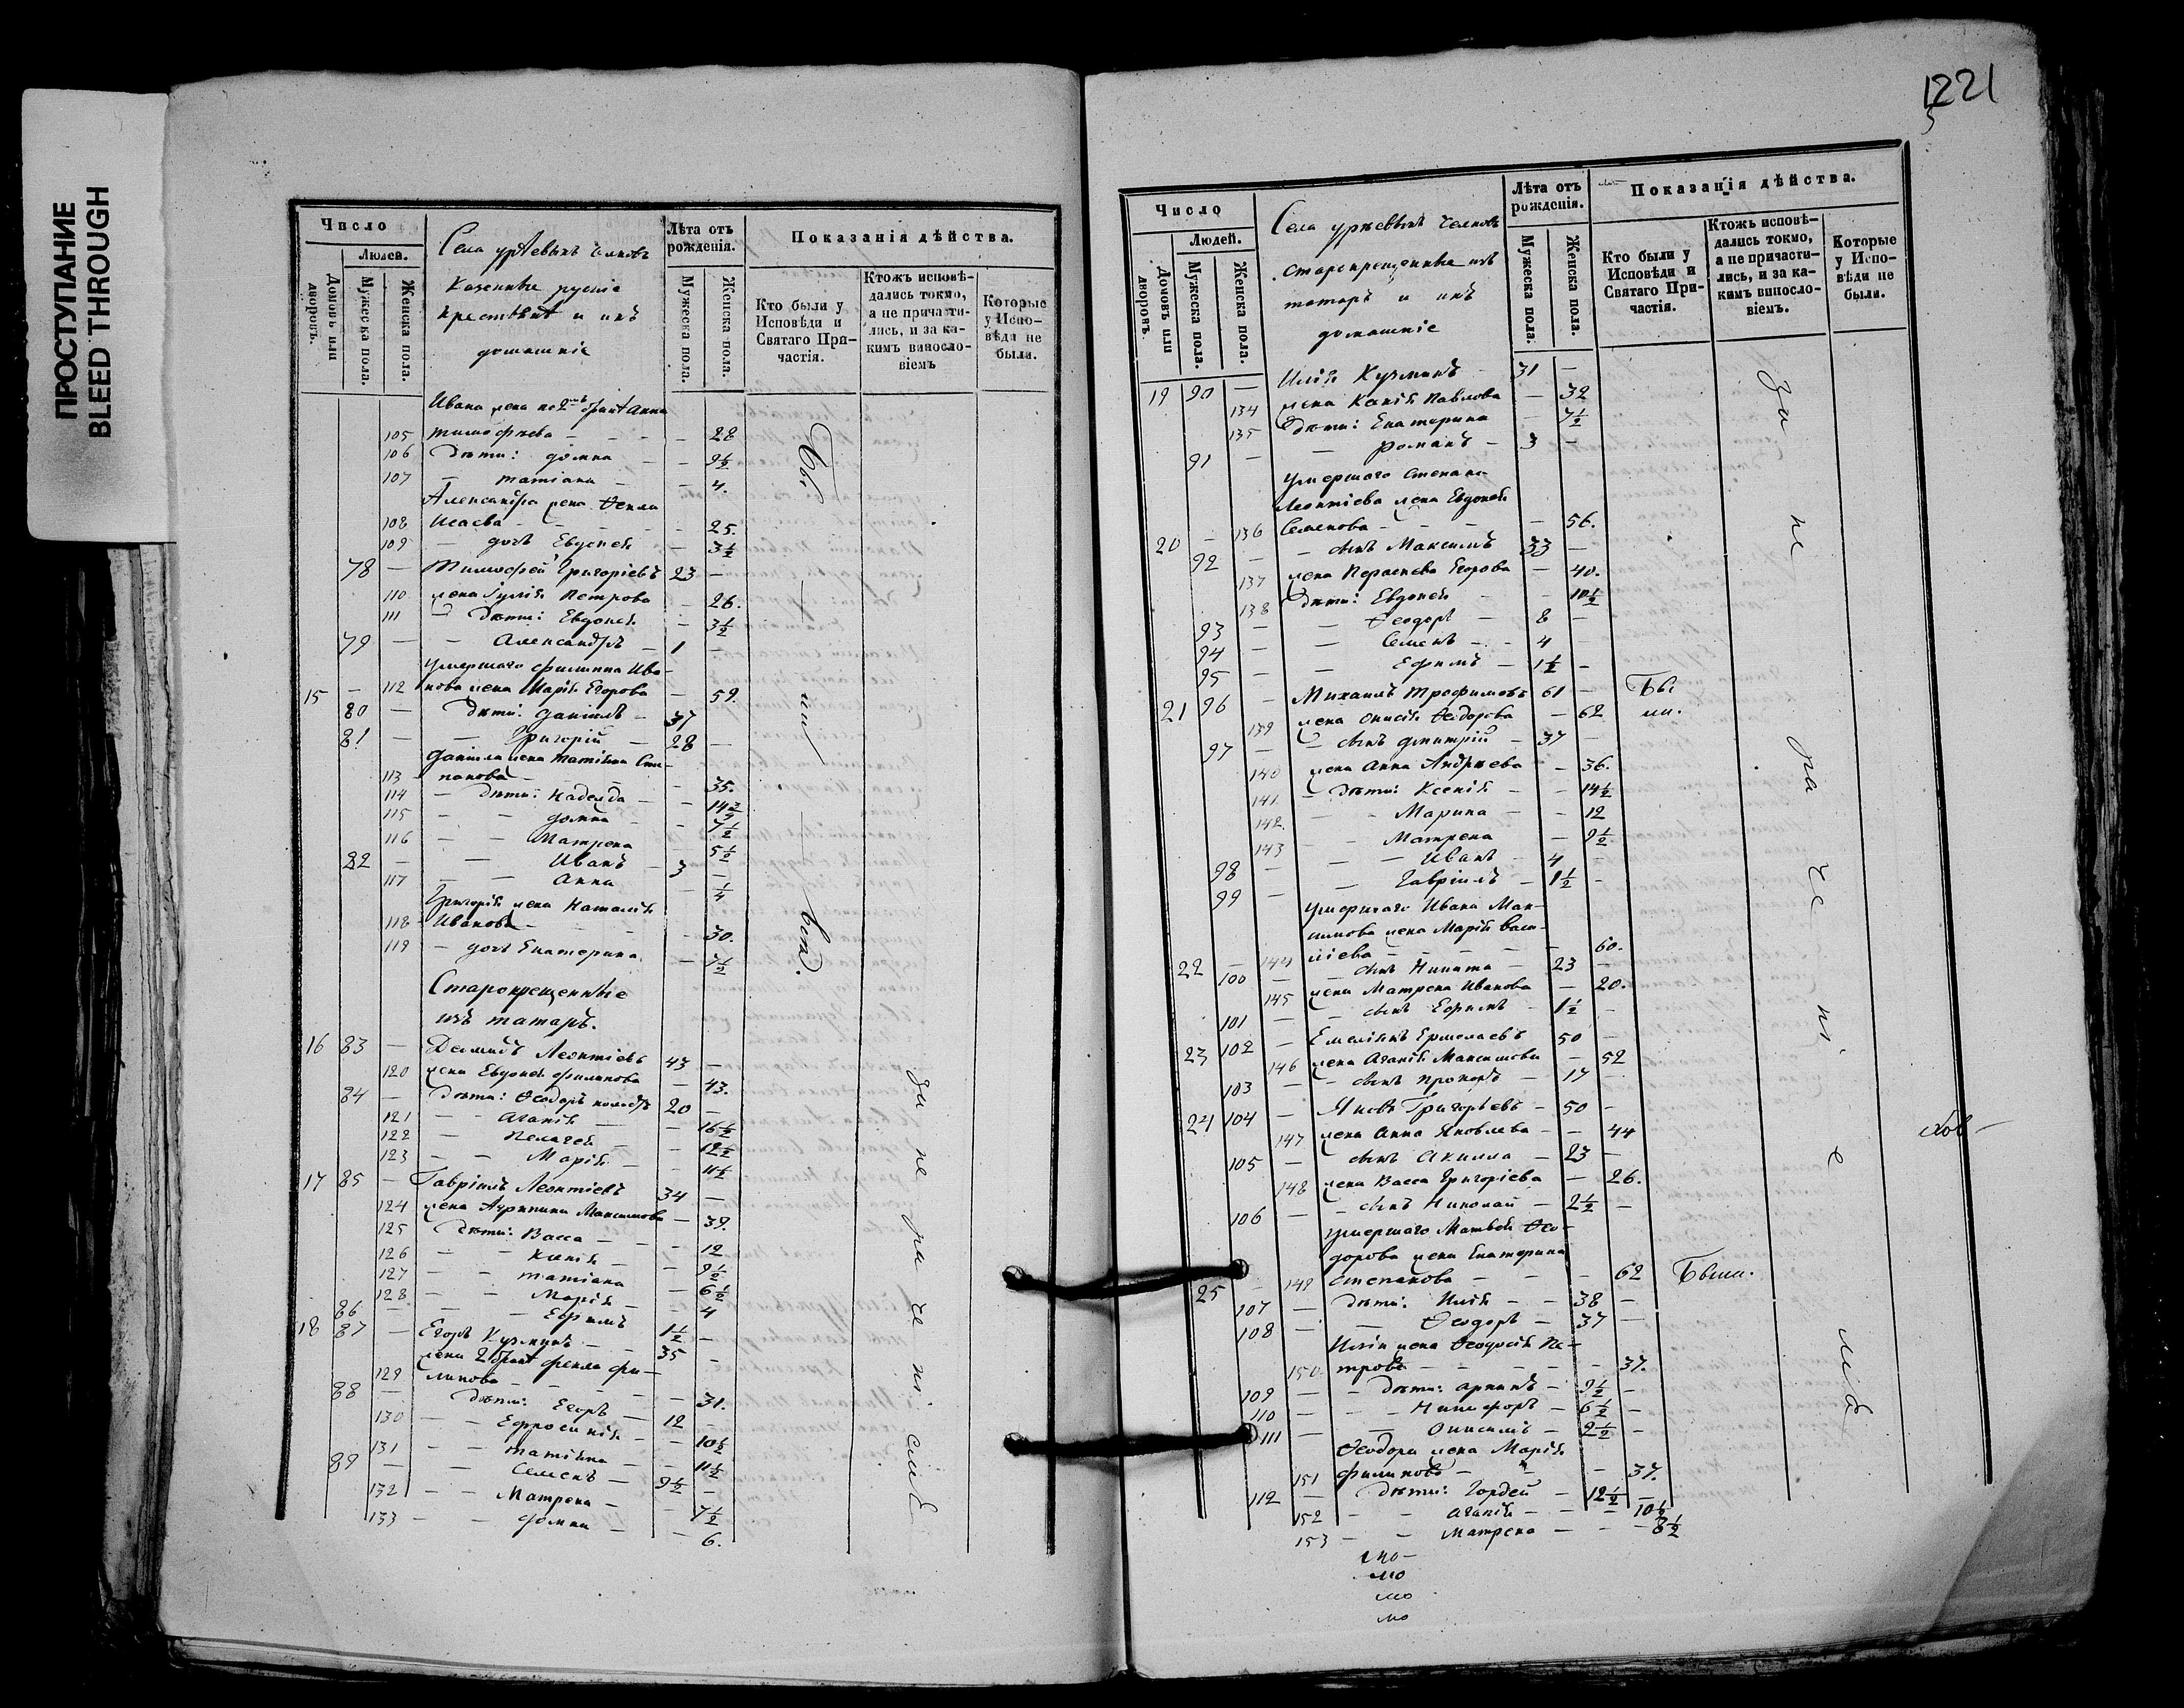 ПРОСТУПАНИЕ
BLEED THROUGH
1221
Число
Людей.
Домовъ или дворовъ.
Мужеска пола.
Женска пола.
Села Урѣевыхъ Челновъ
Казенные русскіе
крестьяне и ихъ
домашніе
Лѣта отъ рожденія.
Мужеска пола.
Женска пола.
Показанія дѣйства.
Кто были у Исповѣди и Святаго Причастія.
Ктожъ исповѣдались токмо, а не причастились, и за какимъ винословіемъ
Которые у Исповѣди не были.
Ивана жена по 2 бракѣ Анна
105 Тимофеева - - - - 28
106 Дѣти: Домна - - 9½
107 - Татіана - - 4.
Александра жена Ѳекла
108 Исаева - - - - 25.
109 - дочь Евдокія - 3½
78 - Тимофей Григоріевъ 23 -
110 жена Іулія Петрова - 26.
111 - Дѣти: Евдокія - 3½
79 - - Александръ - 1 -
Умершаго Филиппа Ива-
15 - 112 нова жена Марія Егорова - 59.
80 - Дѣти: Даніилъ - 37
81 - - Григорій - 28 -
Даніила жена Татіана Сте-
113 панова - - - 35.
114 - Дѣти: Надежда - - 14½
115 - - Домна - - 7½
116 - - Матрена - 5½
82 - - Иванъ - 3 -
117 - - Анна - ¼
Григорія жена Наталія
118 Иванова - - - 30.
119 - дочь Екатерина - 7½
Старокрещенные
изъ татаръ.
16 83 - Демидъ Леонтіевъ 43 -
120 жена Евдокія Филипова - 43.
84 - Дѣти: Ѳеодоръ холостъ 20 -
121 - - Агапія - - 16½
122 - Пелагея - - 12½
123 - - Марія - - 11½
17 85 - Гавріилъ Леонтіевъ 34 -
124 жена Агрипина Максимова - 39.
125 Дѣти: Васса - - 12
126 - - Ксенія - - 9½
127 - - Татіана - 6½
128 - - Марія - - 4
86 - - - Ефимъ 1½ -
18 87 - Егоръ Кузминъ - 35 -
жена 2 бракѣ Фекла Фи-
129 липова - - - - 31.
88 - Дѣти: Егоръ - 12 -
130 - - Ефросинія - - 10½
131 - - Татіана - - 11½
89 - - Семенъ - 9½ -
132 - - Матрена - - 7½
133 - - Домна - - 6.
Бы - ли - вст.
за не ра че ні. еміѣ
Число
Людей.
Домовъ или дворовъ.
Мужеска пола.
Женска пола.
Села Урѣевыхъ Челновъ
старокрещенные изъ
татаръ и ихъ
домашніе
Лѣта отъ рожденія.
Мужеска пола.
Женска пола.
Показанія дѣйства.
Кто были у Исповѣди и Святаго Причастія.
Ктожъ исповѣдались токмо, а не причастились, и за какимъ винословіемъ.
Которые у Исповѣди не были.
19 90 - Илія Кузминъ - 31 -
134 жена Ксенія Павлова - 32
135 Дѣти: Екатерина - 7½
91 - - Романъ - 3 -
Умершаго Степана
Леонтіева жена Евдокія
20 - 136 Семенова - - - - 56.
92 - - сынъ Максимъ 33 -
137 жена Параскева Егорова - 40.
138 Дѣти: Евдокія - - 10½
93 - - Ѳеодоръ - 8 -
94 - - Семенъ - - 4 -
95 - - Ефимъ - 1½ -
21 96 - Михаилъ Трофимовъ 61 - Бы
139 жена Онисія Ѳеодорова - 62 ли.
97 - - сынъ Дмитрій - 37 -
140 жена Анна Андреева - 36.
141 - Дѣти: Ксенія - - 14½
142. - - Марина - - 12
143 - - Матрена - 9½
98 - - Иванъ - 4 -
99 - - Гавріилъ - 1½ -
Умершаго Ивана Мак-
симова жена Марія Васи-
22 - 144 ліева - - - - 60.
100 - - сынъ Никита - 23 -
145 жена Матрена Иванова - 20.
101 - - сынъ Ефимъ - 1½ -
23 102 - Емеліянъ Ермолаевъ 50 -
146 жена Агапія Максимова - 52
103 - - сынъ Прокоръ - 17 -
24 104 - Яковъ Григорьевъ - 50 -
147 жена Анна Яковлева - - 44
105 - сынъ Акилла - 23 -
148 жена Васса Григоріева - 26.
106 - - сынъ Николай - 2½ -
Умершаго Матвея Ѳео-
дорова жена Екатерина
25 - 149 Степанова - - - - 62 Были.
107 - Дѣти: Илія - - 38 -
108 - - Ѳеодоръ - 37 -
Иліи жена Ѳеодосія Пе-
150 трова - - - - - 37.
109 - - Дѣти: Архипъ - 9½ -
110 - - - Никифоръ - 6½ -
111 - - Онисимъ - 2½ -
Ѳеодора жена Марія
151 Филипова - - - 37.
112 - Дѣти: Гордей - 12½ -
152 - - Агапія - - - 10½
153 - - Матрена - - - 8½
мо
мо
мо
за не ра че ні. е міѣ